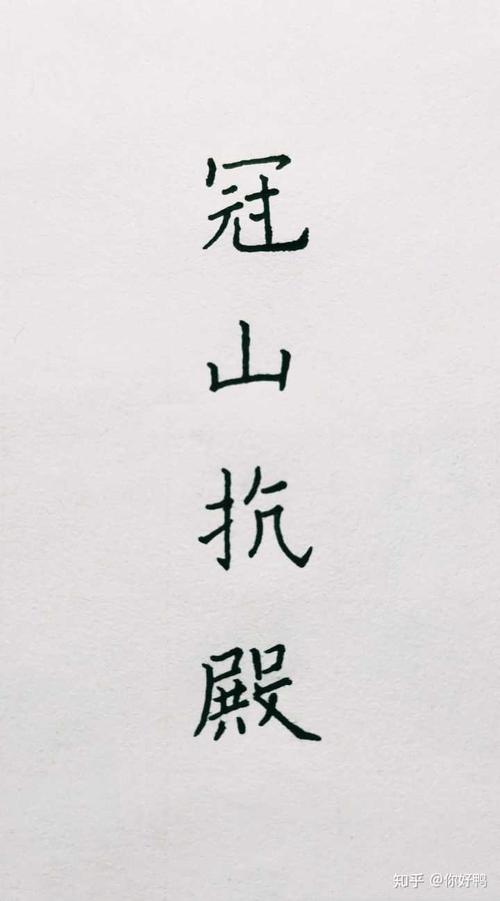 冠山抗殿
知乎 @你好鸭